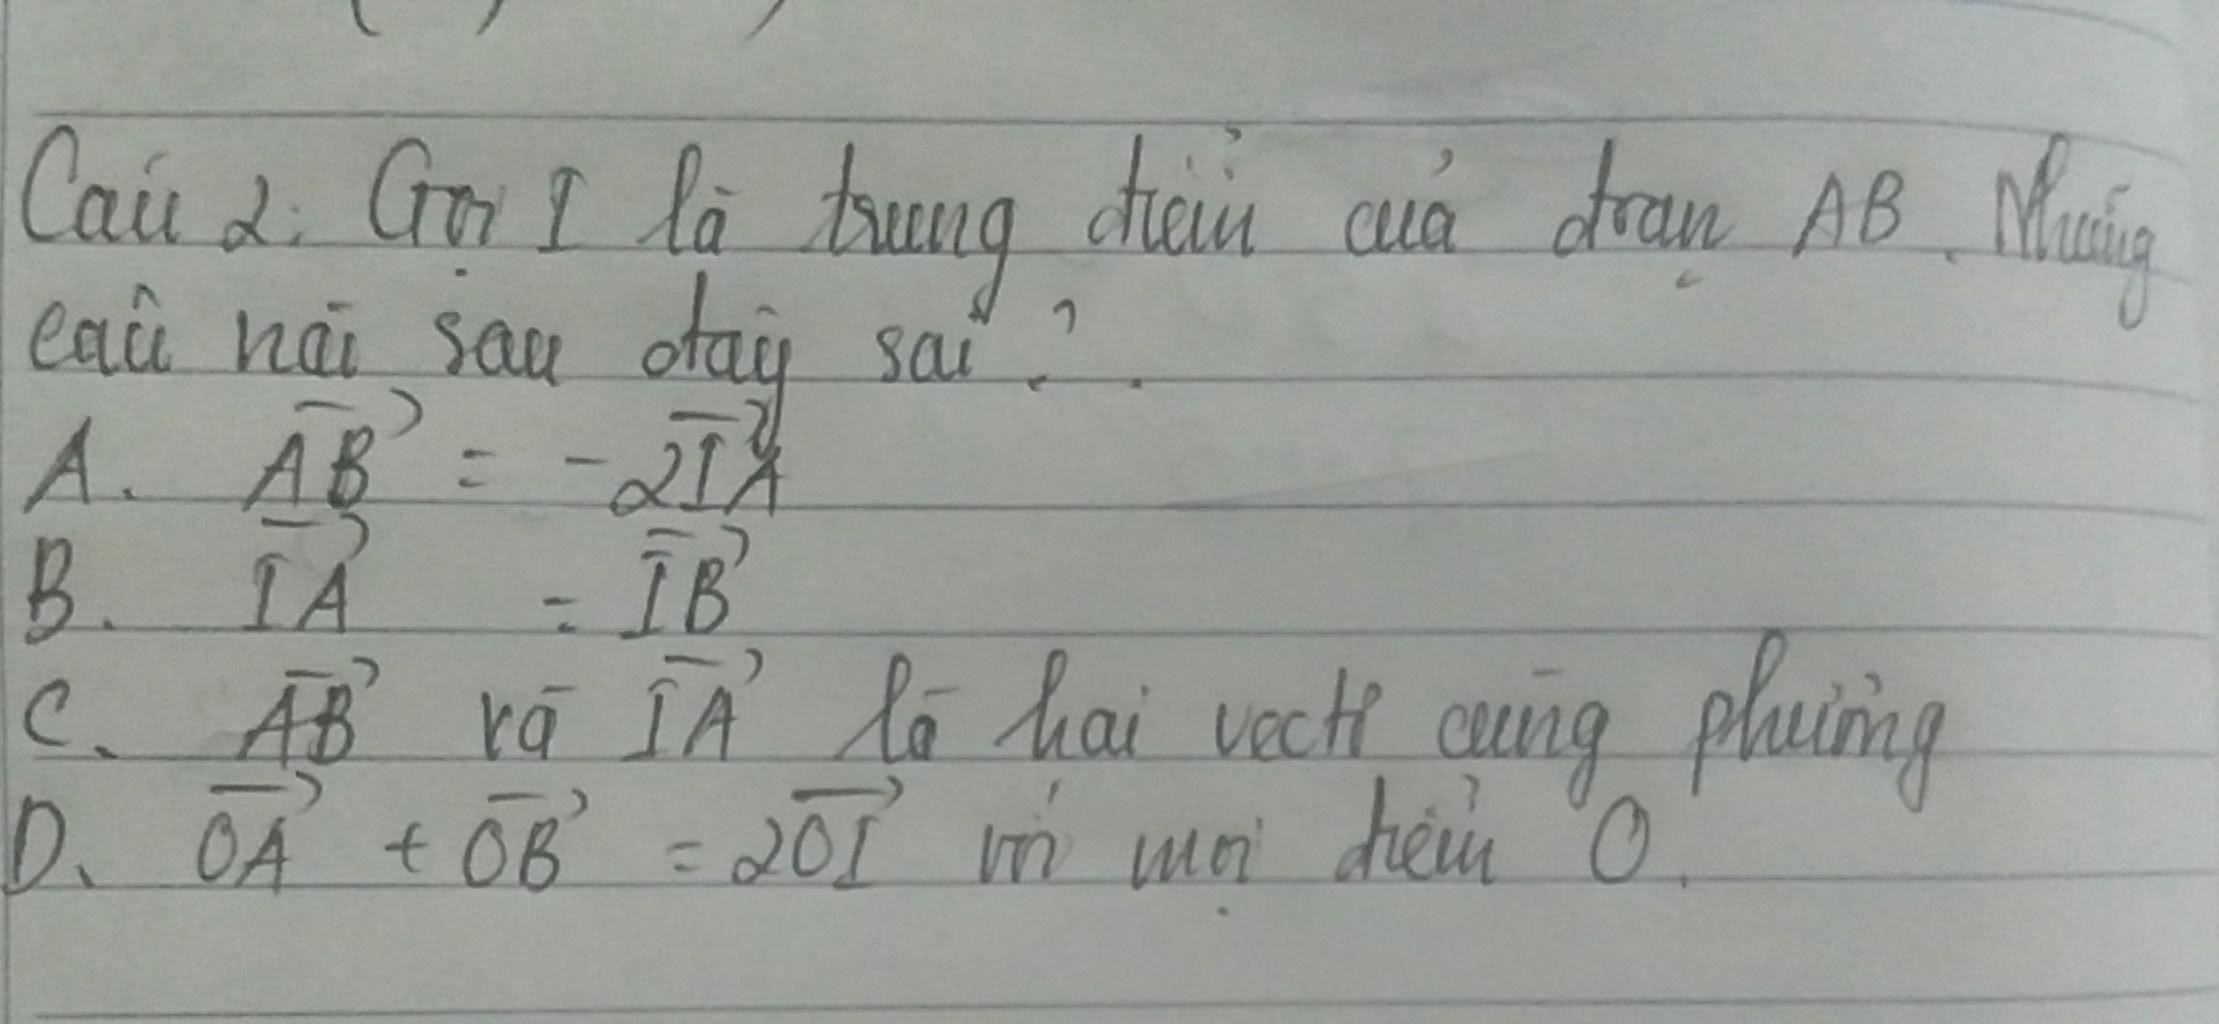 Câu 2: Gọi I là trung điểm của đoạn AB. Những
câu nói sau đây sai?
A. \overrightarrow{AB} = -2\overrightarrow{IA}
B. \overrightarrow{IA} = \overrightarrow{IB}
C. \overrightarrow{AB} và \overrightarrow{IA} là hai vectơ cùng phương
D. \overrightarrow{OA} + \overrightarrow{OB} = 2\overrightarrow{OI} với mọi điểm O.